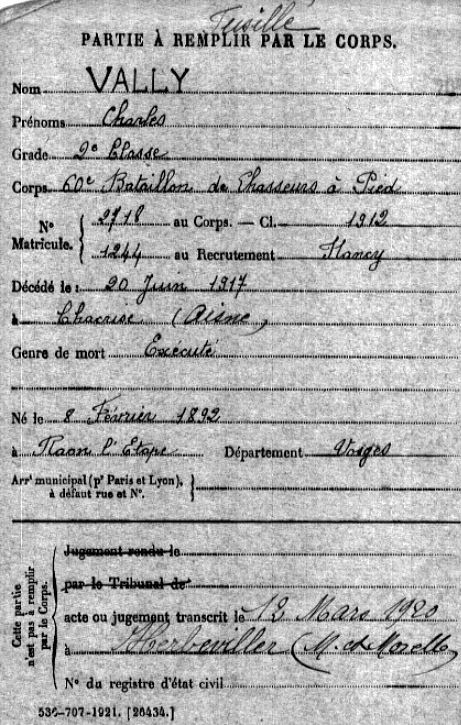 Fusillé
PARTIE À REMPLIR PAR LE CORPS.
Nom VALLY
Prénoms Charles
Grade 2e Classe
Corps 60e Bataillon de Chasseurs à Pied
No Matricule. { 2718 au Corps. — Cl. 1912
1244 au Recrutement Nancy
Décédé le : 20 Juin 1917
à Chacrise (Aisne)
Genre de mort Exécuté
Né le 8 Février 1892
à Raon l'Etape Département Vosges
Arrt municipal (pr Paris et Lyon), à défaut rue et No. }
Cette partie n'est pas à remplir par le Corps.
Jugement rendu le
par le Tribunal de
acte ou jugement transcrit le 12 Mars 1920
à Herbeviller (M. et Moselle)
No du registre d'état civil
536-707-1921. [26434.]